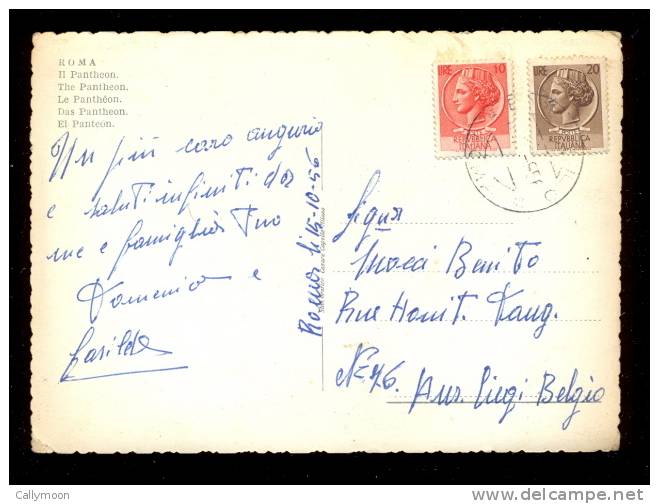 ROMA
Il Pantheon.
The Pantheon.
Le Panthéon.
Das Pantheon.
El Panteón.
Un più caro augurio
e saluti infiniti da
me e famiglia Tuo
Domenico e
10
LIRE
REPVBBLICA
ITALIANA
LIRE 20
REPVBBLICA
ITALIANA
Roma li 15-10-56
Sigur
Benito
Rue
No 46.
Liegi Belgio
Callymoon
www.delcampe.net